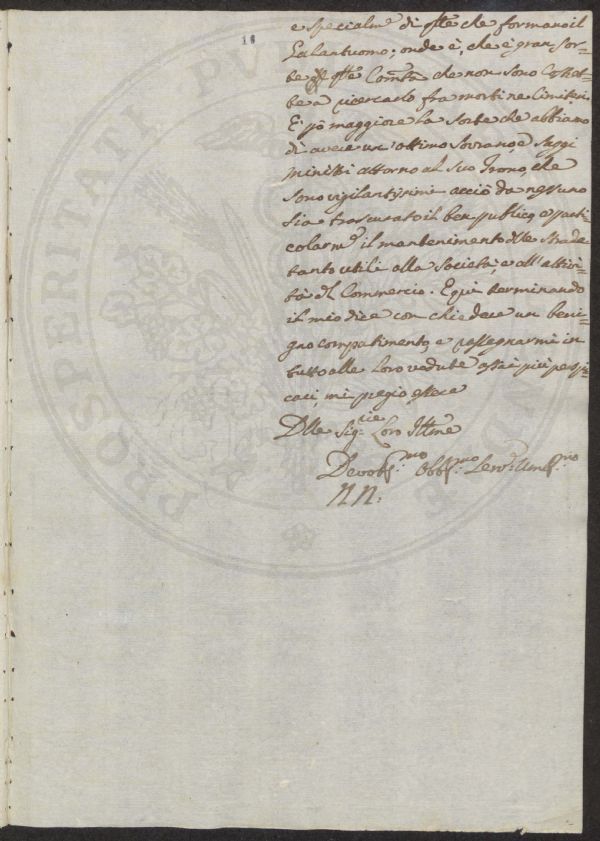 18
e specialm.e di q.ste che formano il
Galantuomo; onde è, che è gran sor-
te q.ste Com.tà che non sono Costret-
te a ricercarlo fra morti ne Cimiterj.
E pò maggiore la sorte che abbiamo
di avere un ottimo Sovrano, e Saggi
ministri attorno al Suo Trono, che
sono vigilantissimi acciò da nessuno
sia trascurato il ben publico, e parti
colarm.e il mantenimento dlle Strade
tanto utili alla Società, e all' attivi-
tà dl Commercio. E qui terminando
il mio dire con chiedere un beni-
gno compatimento, e rassegnarmi in
tutto alle Loro vedute assai più perspi-
caci, mi pregio essere
Dlle Sig.rie Loro Ill.me
Devot.mo Obb.mo Serv.e Um.mo
NN.
PROSPERITATI PVB